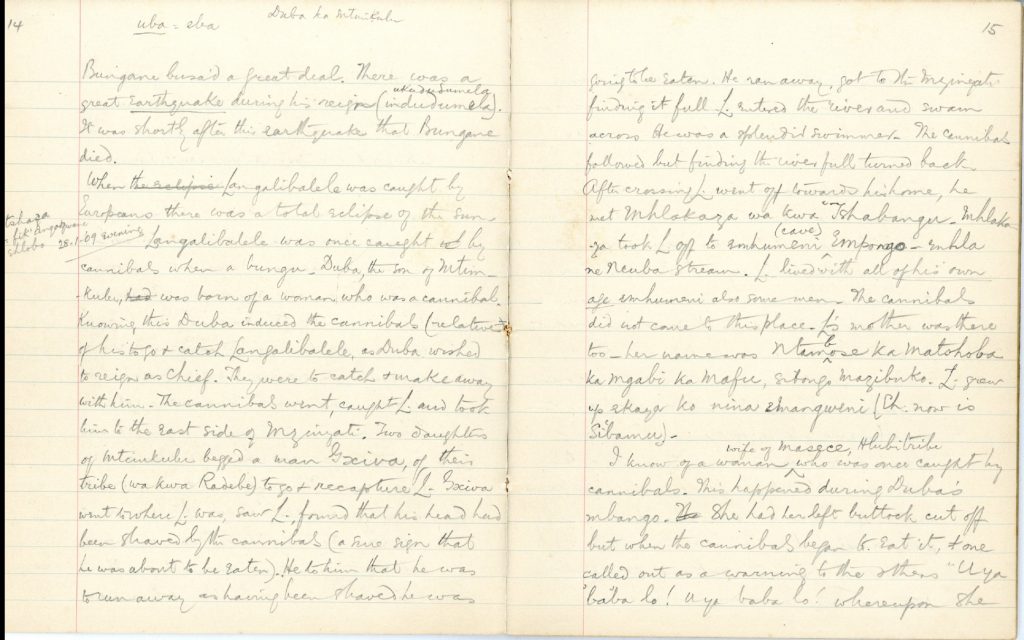 14
uba = eba
Duba ka Mtimkulu
Bungane busa'd a great deal. There was a
ukududumela
great Earthquake during his reign (indudumela).
It was shortly after this earthquake that Bungane
died.
When the eclipse Langalibalele was caught by
Europeans there was a total eclipse of the sun.
28.1.09 evening
Langalibalele was once caught by
cannibals when a bungu - Duba, the son of Mtim-
-kulu, had was born of a woman who was a cannibal.
Knowing this Duba induced the cannibals (relatives
of his to go & catch Langalibalele, as Duba wished
to reign as Chief. They were to catch & make away
with him. The cannibals went, caught L. and took
him to the East side of Mzinyati. Two daughters
of Mtimkulu begged a man Gxiva, of their
tribe (wa kwa Radebe) to go & recapture L. Gxiva
went to where L. was, saw L., found that his head had
been shaved by the cannibals (a sure sign that
he was about to be eaten). He to him that he was
to run away as having been shaved he was
15
going to be eaten. He ran away, got to the Mzinyati
finding it full L. entered the river and swam
across. He was a splendid swimmer. The cannibals
followed but finding the river full turned back.
After crossing L. went off towards his home, he
met Mhlakaza wa kwa Tshabangu. Mhlaka-
(cave)
-za took L. off to emhumeni Empongo - enhla
ne Ncuba stream. L. lived with all of his own
age emhumeni also some men. The cannibals
did not come to this place. L's mother was there
too - her name was Ntambose ka Matohoba
ka Mgabi ka Mafu, sibongo Mazibuko. L. grew
up ekaya ko nina emangweni (Ch. now is
Sibamu).
wife of Masece, Hlubi tribe
I know of a woman who was once caught by
cannibals. This happened during Duba's
mbango. She had her left buttock cut off
but when the cannibals began to eat it, & one
called out as a warning to the others "U ya
baba lo! U ya baba lo! whereupon she